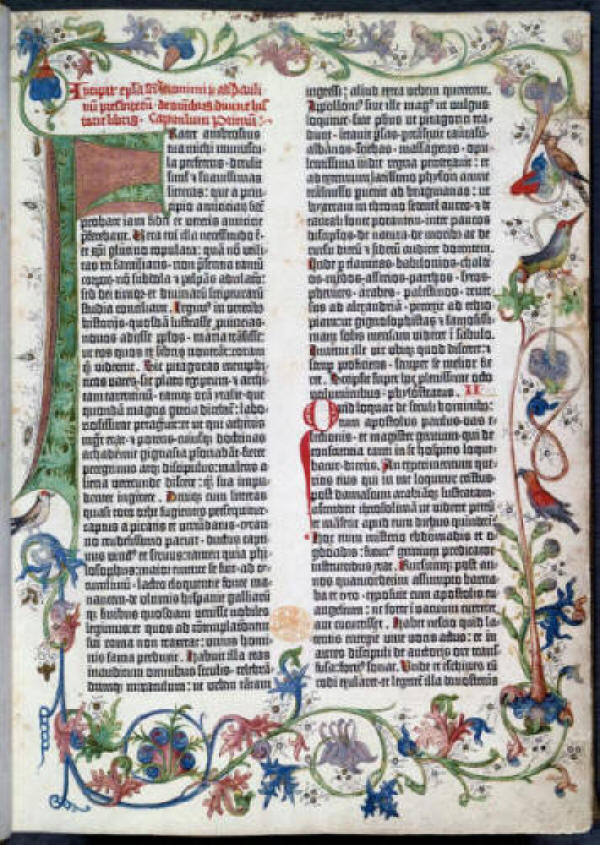 Incipit epla sci Iheronimi ad Pauli
nū presbiterū de omnibus divine his
torie libris · Capitulum Primum
Frater ambrosius
tua michi munuscu
la perferens · detulit
sił et suavissimas
litteras: que a prin
cipio amiciciar
probate iam fidei et veteris amicicie
Vera eni illa necessitudo ē
et xpi glutino copulata: quā nō utili
tas rei familiaris · non pñtia tantū
corporum · nō subdola et palpās adulacō:
sed dei timor · et divinarū scripturarū
studia conciliant. Legimus in veteribus
historijs · quosdā lustrasse provincias ·
novos adisse pplos · maria trāsisse:
ut eos quos ex libris noverāt: coram
videret. Sic pitagoras memphi
ticos vates · sic plato egiptum · et archi
tam tarentinū · eamque oram ytalie · que
quondā magna grecia dicebat: labo
riosissime peragravit: et ut qui athenis
mgr erat · et potens · cuiusque doctrinas
achademie gignasia psonabāt · fieret
peregrinus atque discipulus: malens a
liena verecunde discere: quam sua impu
denter ingerere. Deniq; cum litteras
quasi toto orbe fugientes persequitur
captus a piratis et venundatus · tyran
no crudelissimo paruit · ductus capti
vus vinctus et servus: tamen quia phi
losophus: maior emente se fuit · ad ty
tum liviū · lacteo eloquentie fonte ma
nantem · de ultimis hispanie galliarū
finibus quosdam venisse nobiles
legimus: et quos ad contemplacōem
sui roma non traxerat: unius homi
nis fama perduxit. Habuit illa etas
inauditum omnibus seculis · celebrā
dumq; miraculum: ut urbem tātam
ingressi: aliud extra urbem quererent.
Apollonius sive ille magus ut vulgus
loquitur · sive phus ut pitagorici tra
dunt · intravit psas · ptrāsivit caucasū ·
albanos · scithas · massagetas · opu
lentissima indie regna penetravit: et
ad extremum latissimo physon amne
trāsmisso puenit ad bragmanas: ut
hyarcam in throno sedentē aureo · et de
tantali fonte potantem · inter paucos
discipulos · de natura · de moribus ac de
cursu dierū et siderū audiret docentem.
Inde p elamitas · babilonios · chalde
os · medos · assirios · parthos · syros ·
phenices · arabes · palestinos · rever
sus ad alexandriā · perrexit ad ethio
piam: ut gignosophistas et famosissi
mam solis mensam videret ī sabulo.
Invenit ille vir ubique quod disceret: et
semp proficiens · semper se melior fie
ret. Scripsit super hoc plenissime octo
voluminibus · phylostratus. II
Quid loquar de seculi hominibus:
cum apostolus paulus · vas e
lectionis · et magister gentium · qui de
consciencia tanti in se hospitis loque
batur · dicens. An experimentum que
ritis eius qui in me loquitur cristus ·
post damascum arabiāque lustratam ·
ascenderit iherosolimā ut videret petrū
et māserit apud eum diebus quindeci.
Hoc enim misterio ebdomadis et o
gdoadis: futurus gentium predicator
instruendus erat. Rursumque post an
nos quatuordecim assumpto barna
ba et tyto · exposuit cum apostolis eu
angelium: ne forte ī vacuum curreret
aut cucurrisset. Habet nescio quid la
tentis energie vive vocis actus: et in
aures discipuli de auctoris ore trans
fusa: fortius sonat. Unde et eschines cū
rodi exularet · et legeret illa demostenis